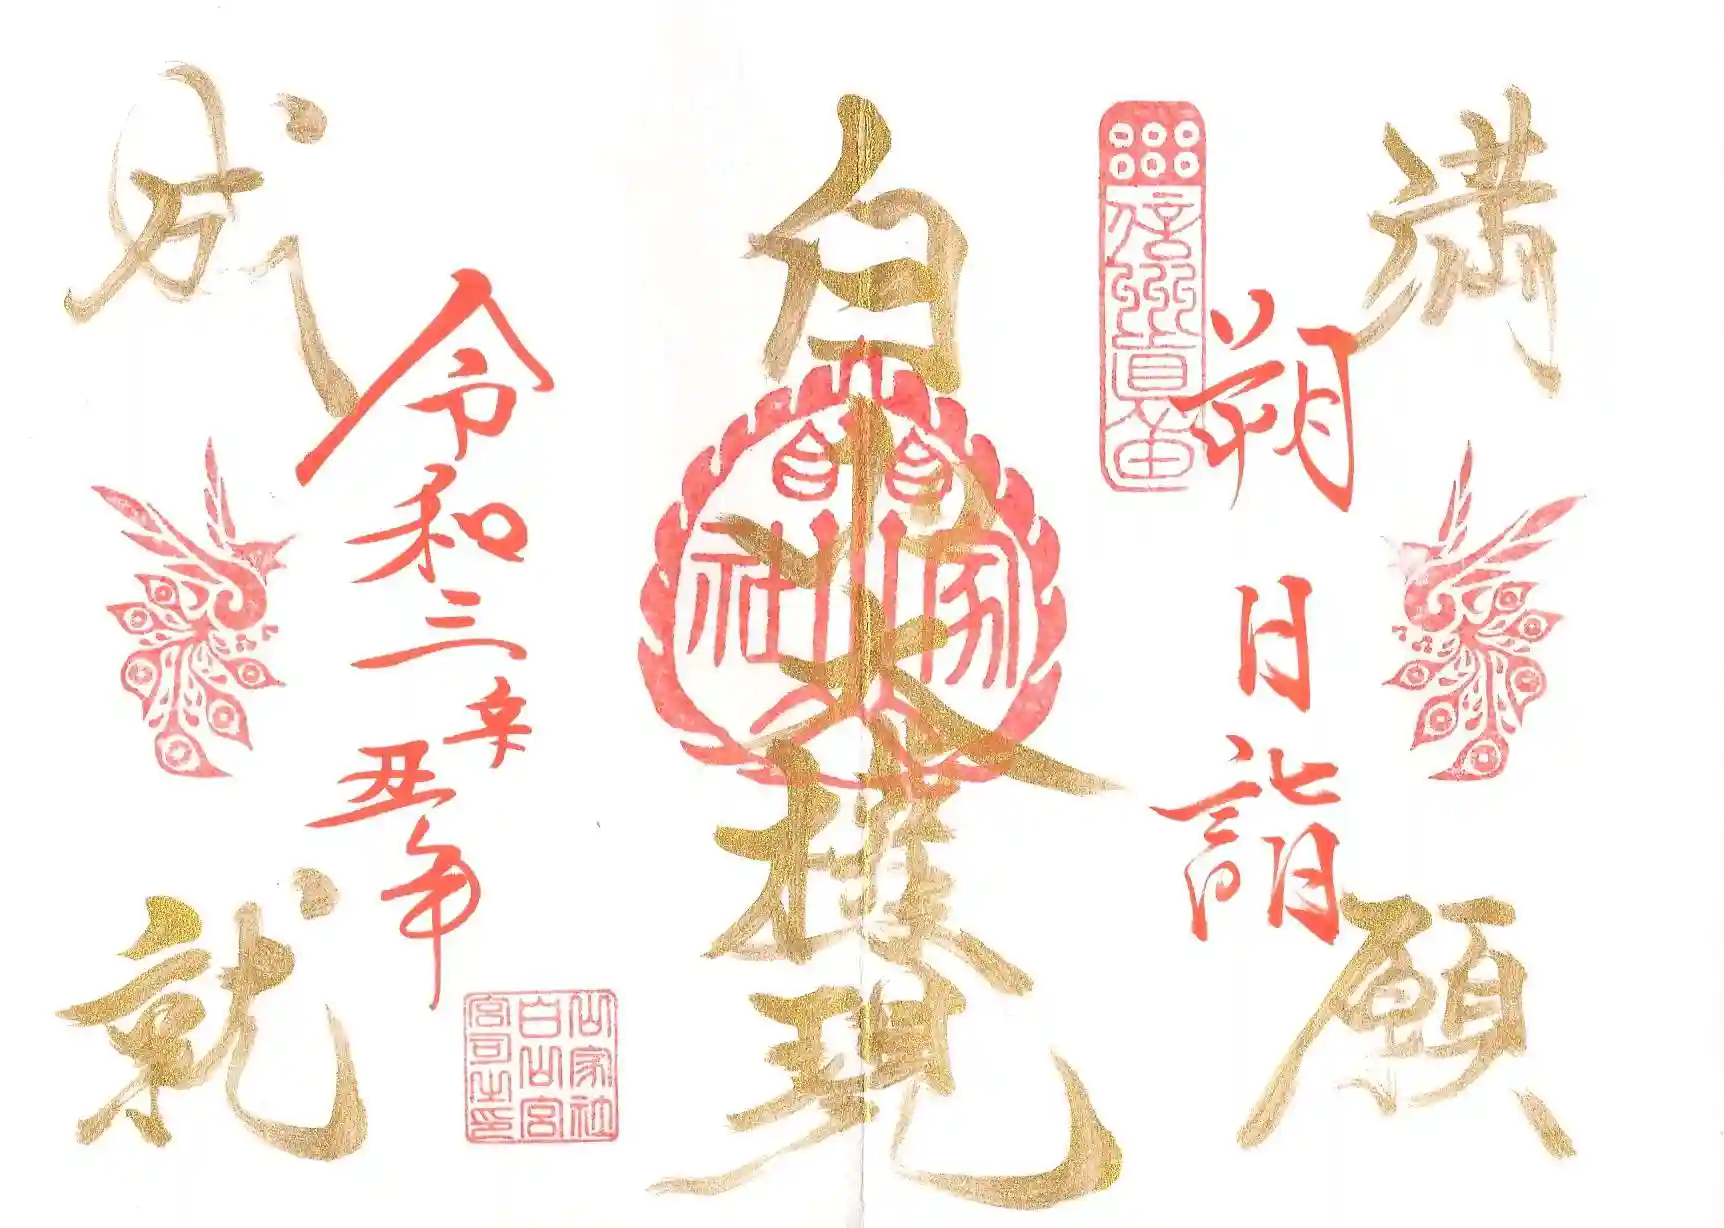 満願
信州真田
朔日詣
白山大権現
令和三辛丑年
山家社
白山宮
宮司之印
成就